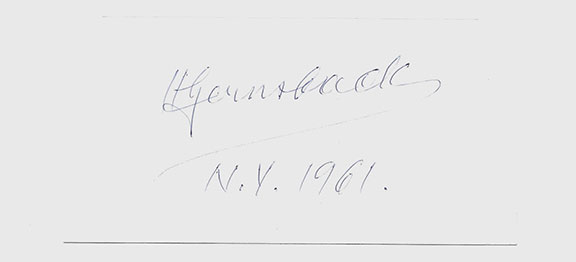 HGernsback
N.Y. 1961.